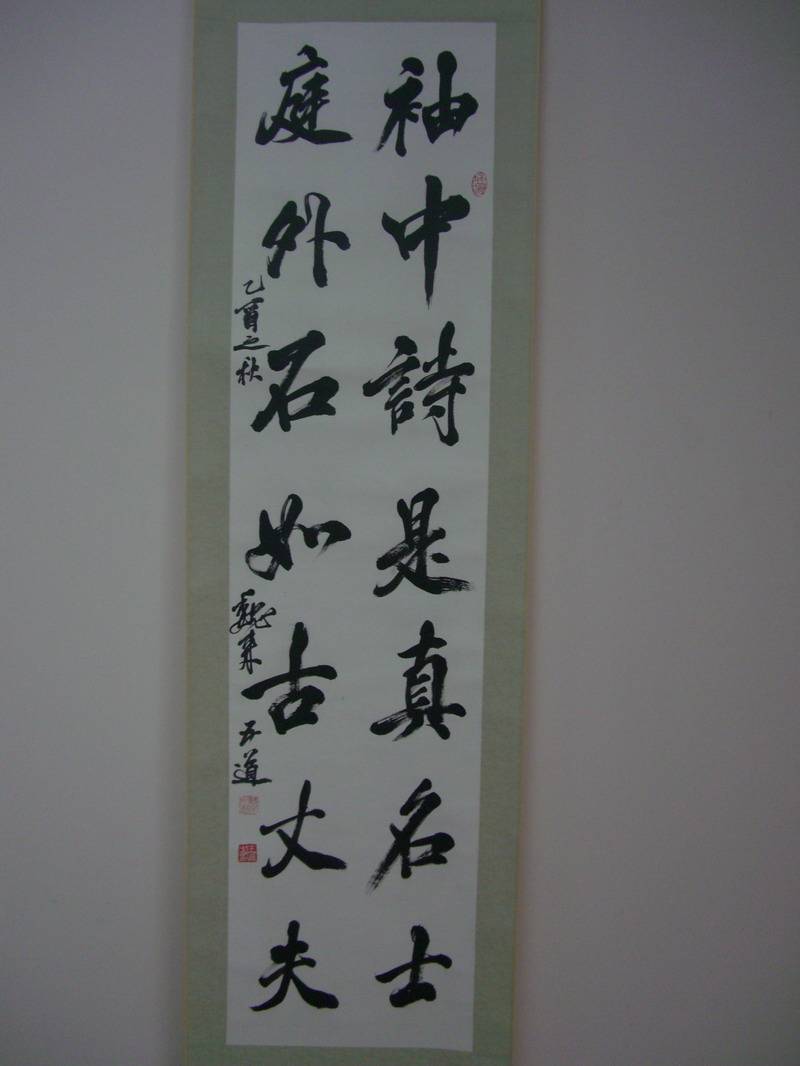 袖中詩是真名士
庭外石如古丈夫
乙酉之秋
魏来 五道